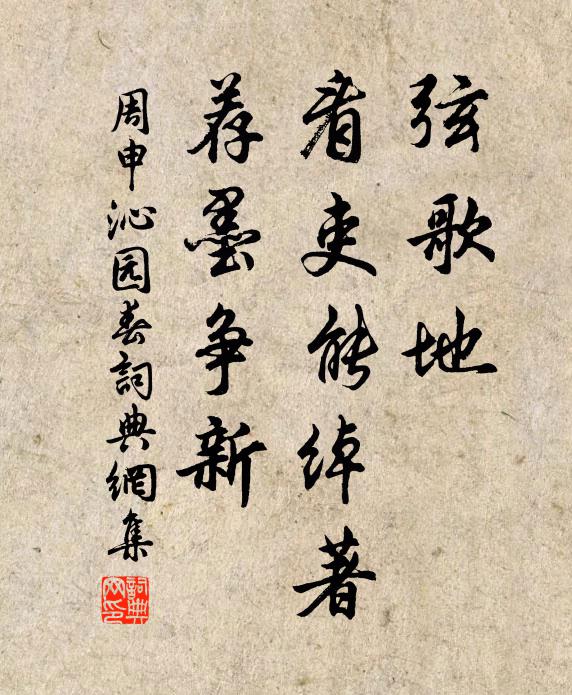 弦歌地
看吏能绰著
荐墨争新
周申沁园春詞典網集
詞典